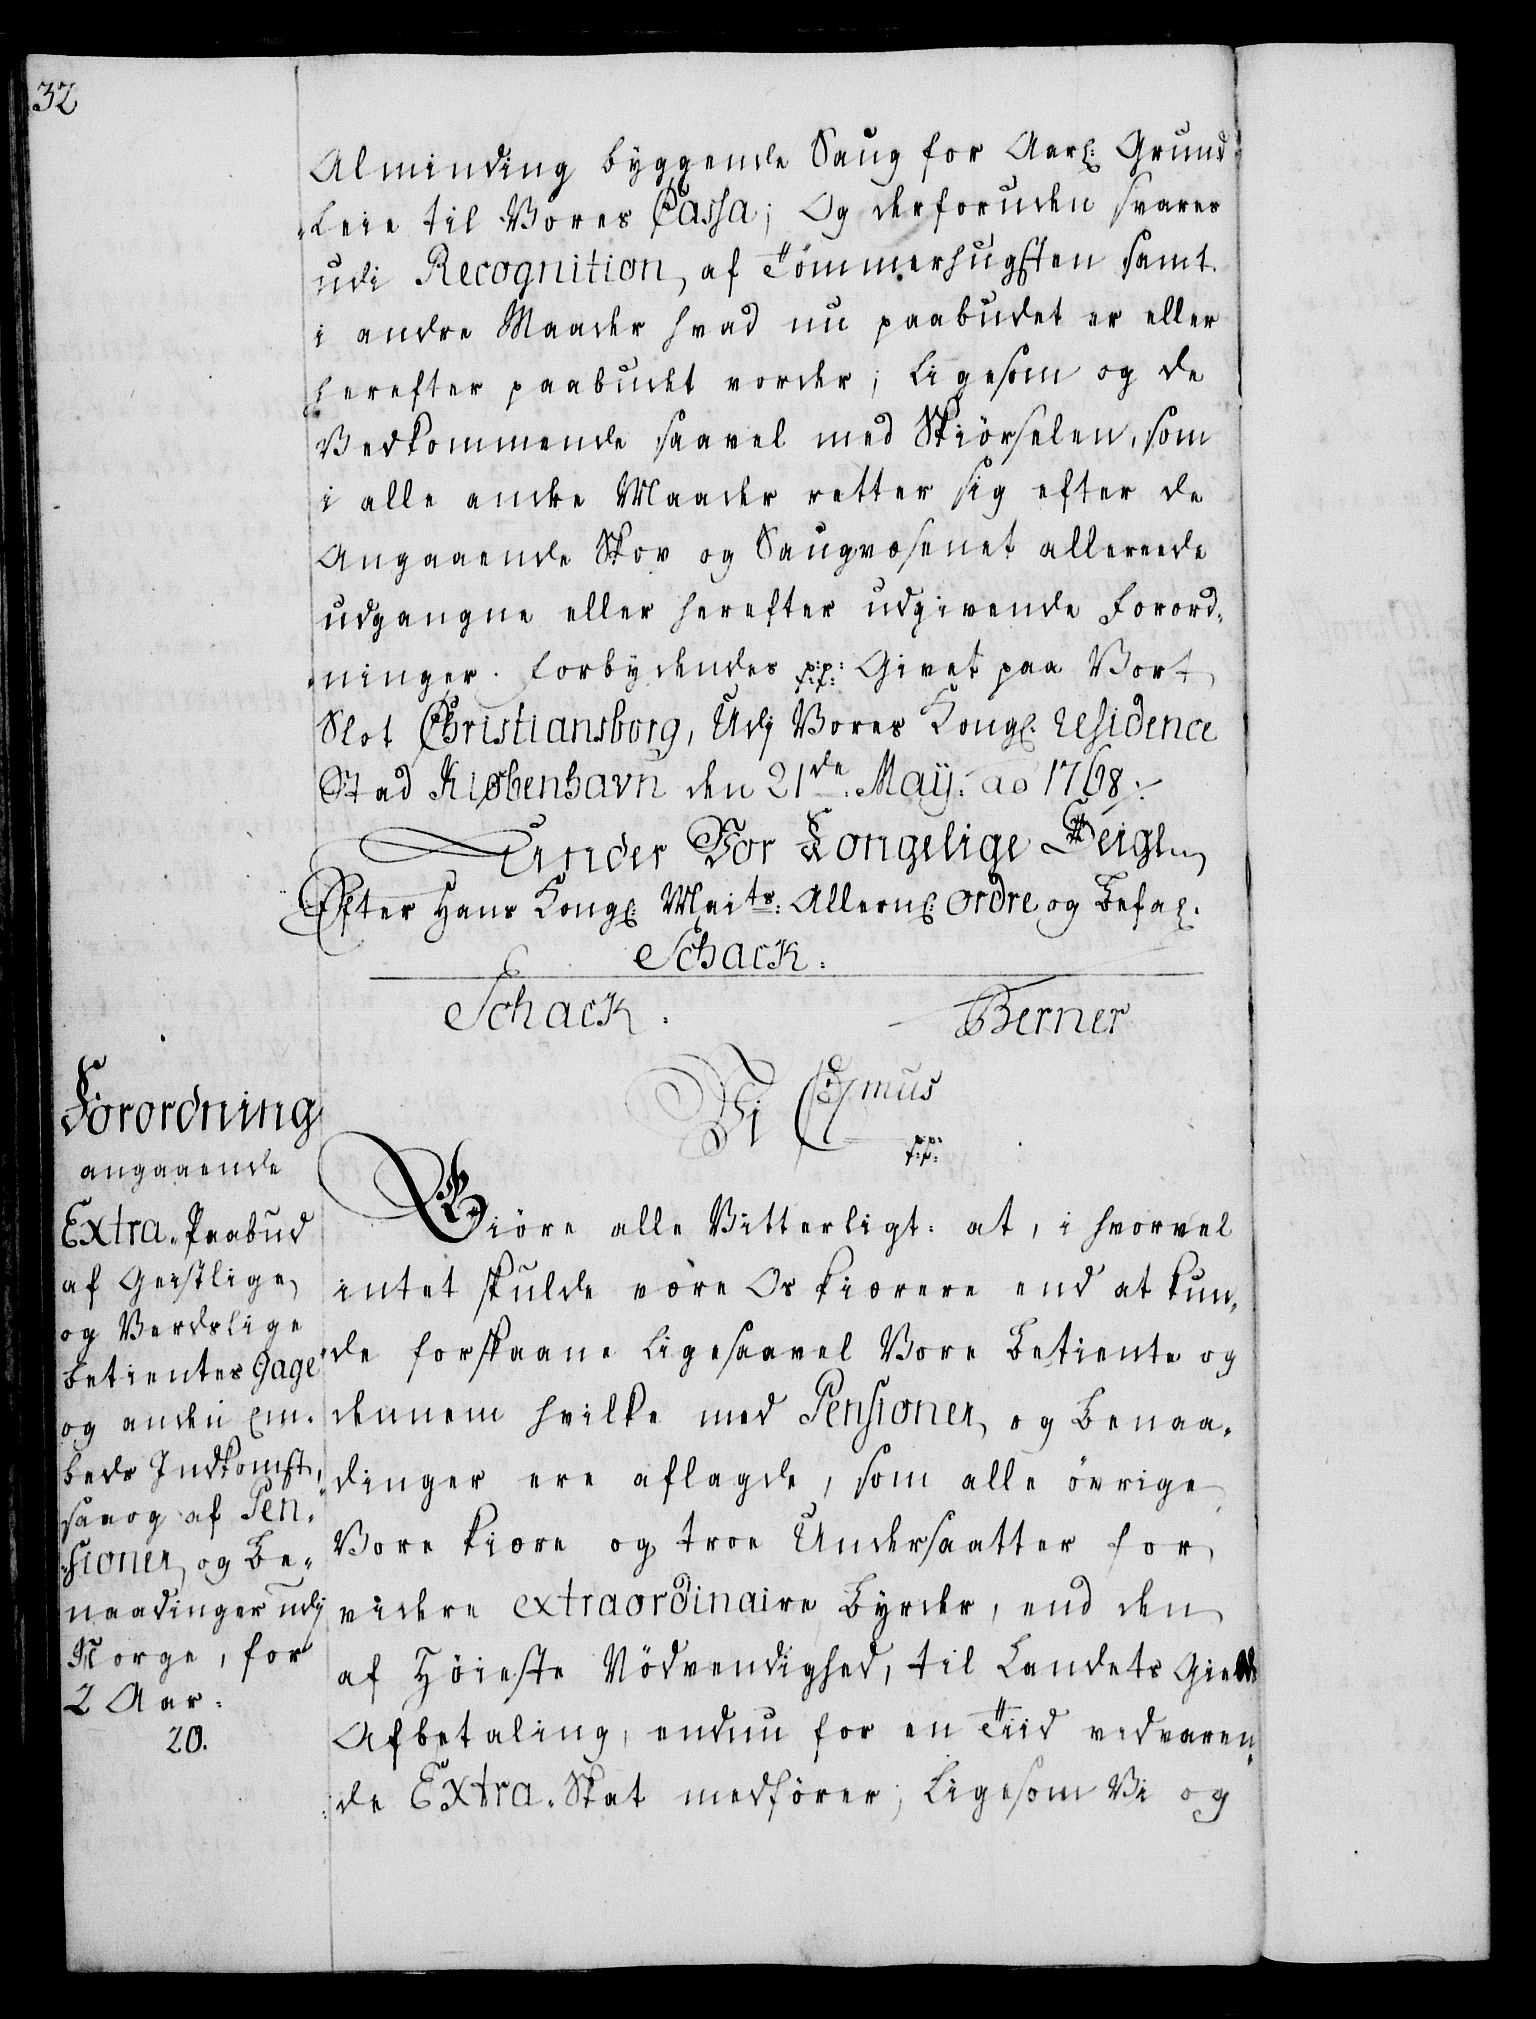 32
Alminding byggende Saug for Aarl: Grund
„Leie til Vores Cassa; Og derforuden svares
udi Recognition, af Tömmerhugsten samt
i andre Maader hvad nu paabudet er eller
herefter paabudet vorder; Ligesom og de
Vedkommende saavel med Skiörselen, som
i alle andre Maader retter sig efter de
Angaaende Skov og Saugvæsenet allereede
udgangne eller herefter udgivende Forord„
„ninger. Forbydendes p:p: Givet paa Vort
f:f:
Slot Christiansborg, Udj Vores Kongl. residence
Stad Kiøbenhavn den 21de Maÿ: ao 1768 ⁒
Under Vor Kongelige Seigl.
Efter Hans Kongl: Maits: Allern: Ordre og Befal.
Schack.
Schack. Berner
Forordning
angaaende
Extra„Paabud
af Geistlige
og Verdslige
betientes Gage
og anden Em„
beds Indkomst,
saaog af Pen„
„sioner og Be„
naadinger udj
Norge, for
2 Aar.
20.
Vi C7mus
p:p:
f:f:
Giöre alle Vitterligt: at, i hvorvel
intet skulde være Os kiærere end at kun„
„de forskaane ligesaavel Vore Betiente og
dennem hvilke med Pensioner, og Benaa„
dinger ere aflagde, som alle övrige
Vore kiære og troe Undersaatter for
videre extraordinaire Byrder, end den
af Höieste Nödvendighed, til Landets Gields
Afbetaling, endnu for en Tiid vedvaren„
de Extra„Skat medförer; Ligesom Vi og